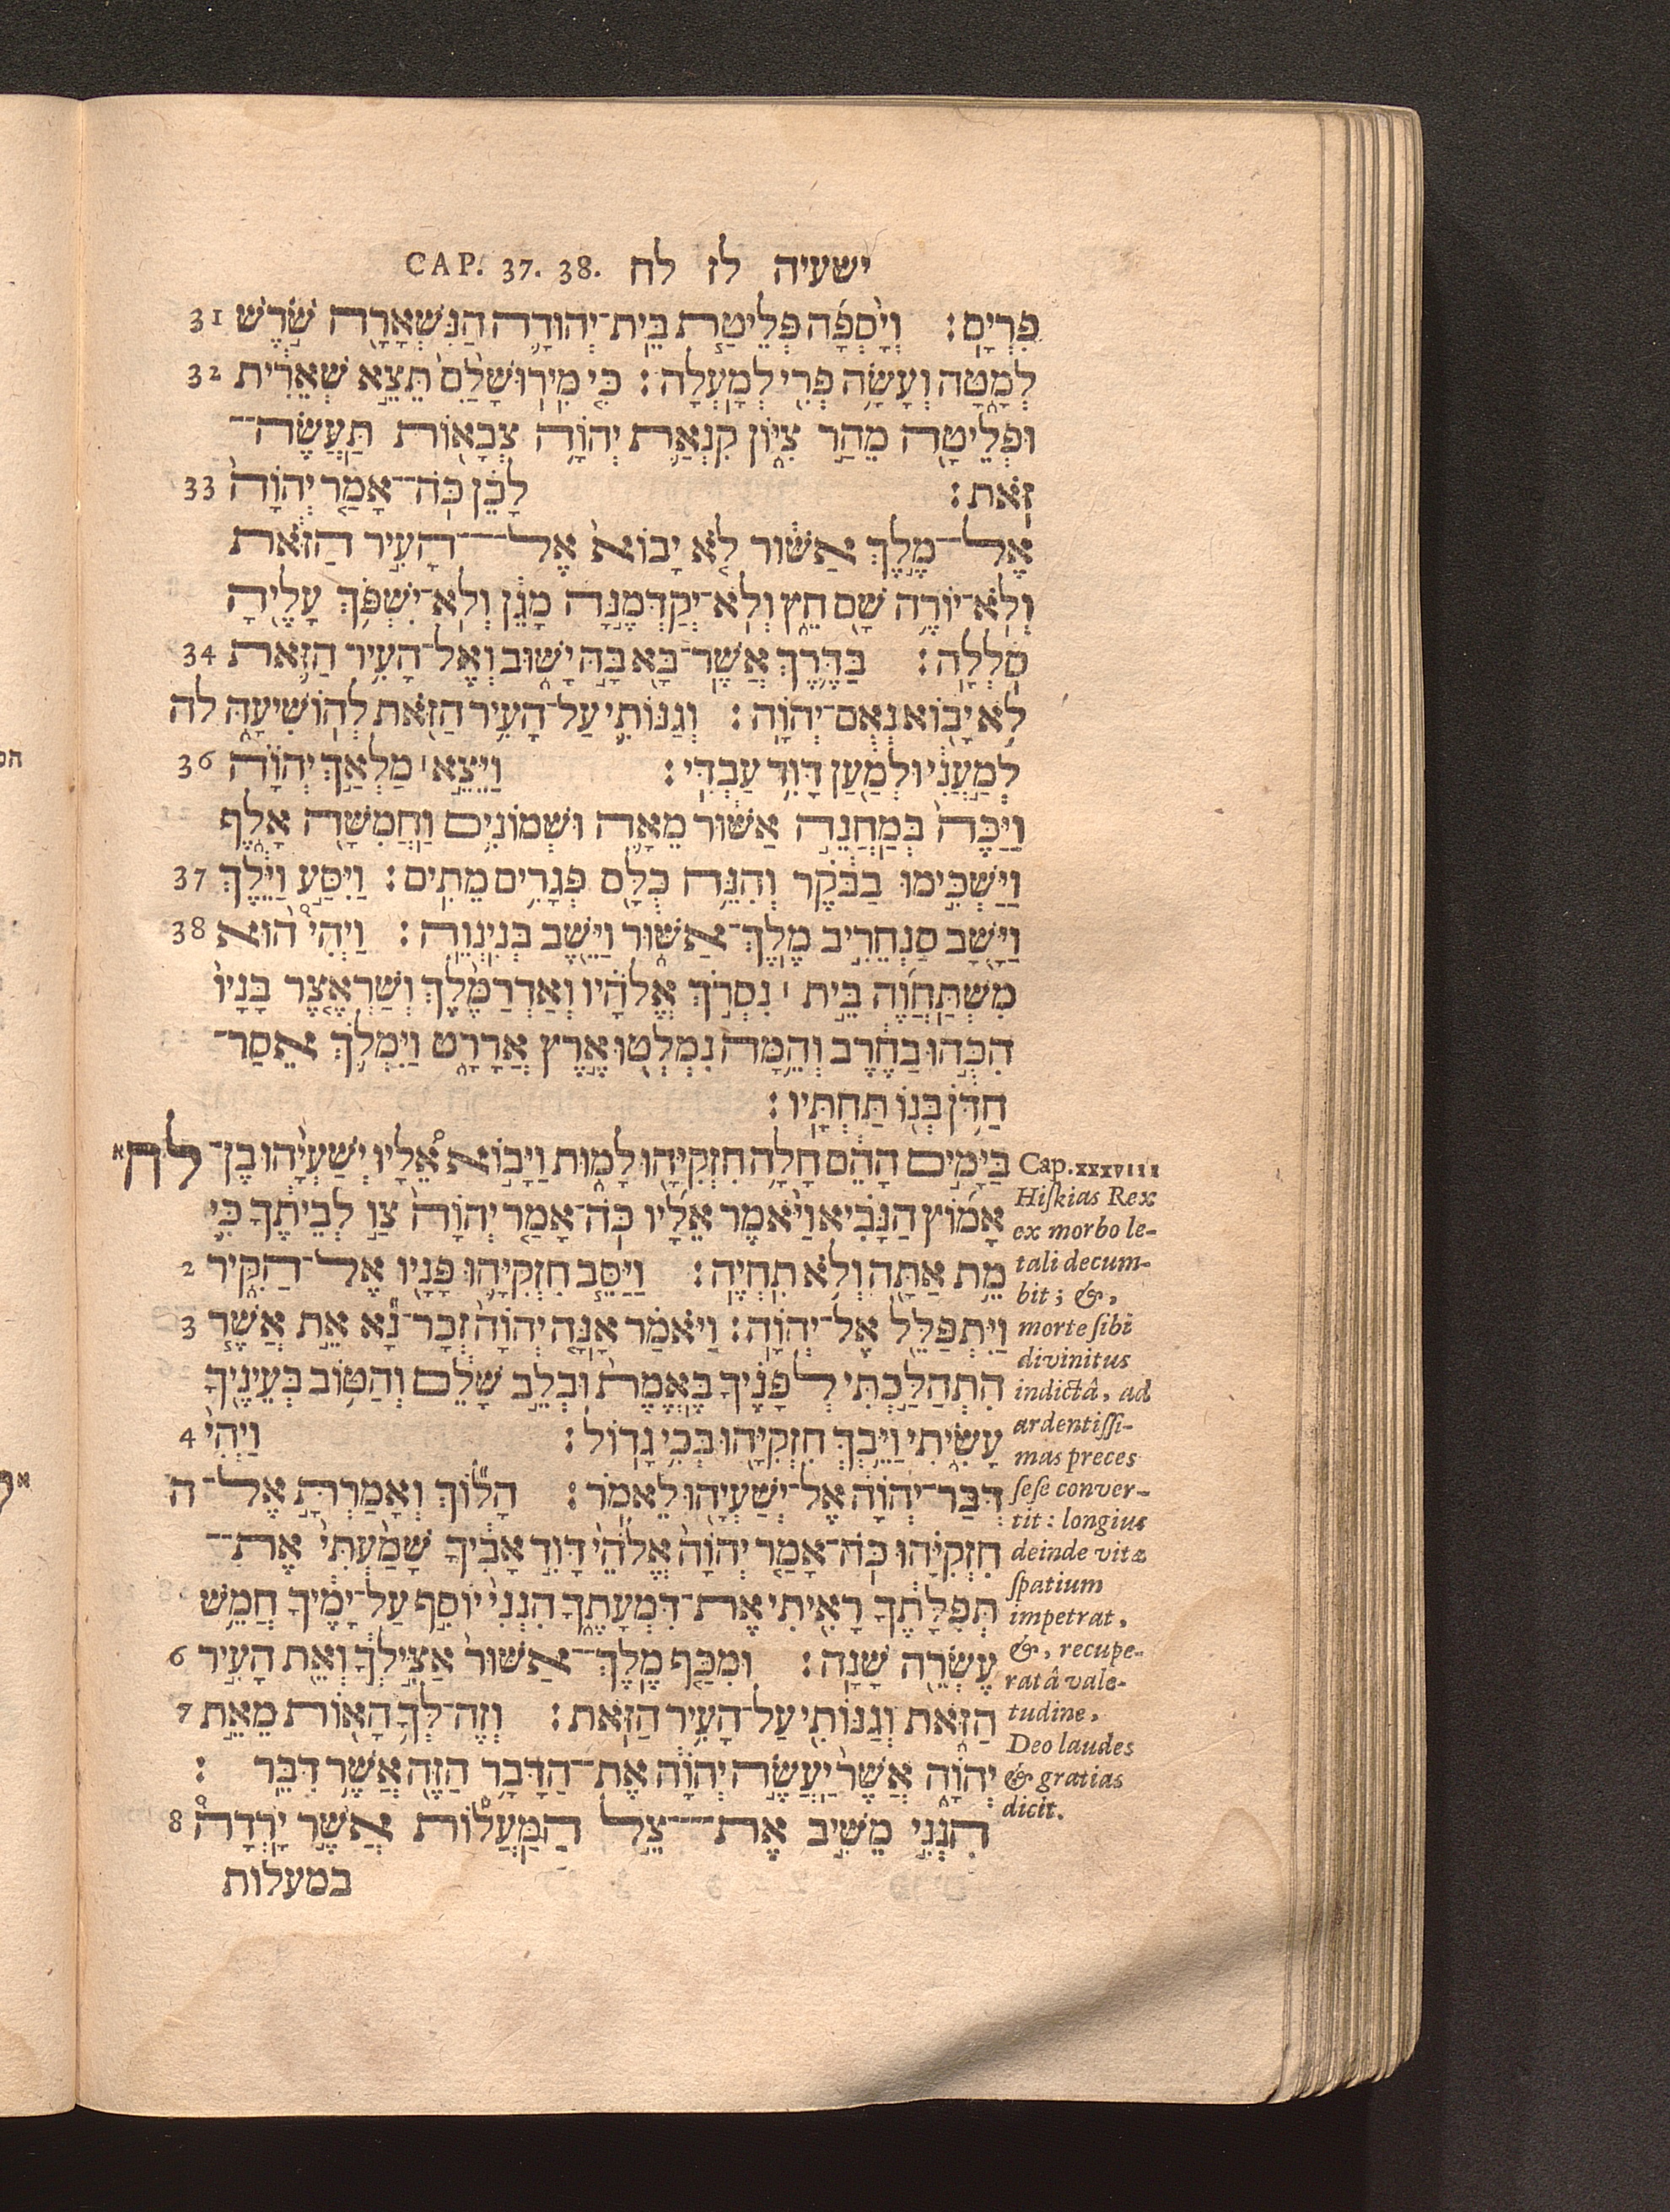 ישעיה לז לח CAP. 37. 38.
פִרְיָם׃ וְיָסְפָה פְּלֵיטַת בֵּית־יְהוּדָה הַנִּשְׁאָרָה שֹׁרֶשׁ 31
לְמָטָּה וְעָשָׂה פְרִי לְמָעְלָה׃ כִּי מִירוּשָׁלַםִ תֵּצֵא שְׁאֵרִית 32
וּפְלֵיטָה מֵהַר צִיּוֹן קִנְאַת יְהוָה צְבָאוֹת תַּעֲשֶׂה־
זֹאת׃ לָכֵן כֹּה־אָמַר יְהוָה 33
אֶל־מֶלֶךְ אַשּׁוּר לֹא יָבוֹא אֶל־הָעִיר הַזֹּאת
וְלֹא־יוֹרֶה שָׁם חֵץ וְלֹא־יְקַדְּמֶנָּה מָגֵן וְלֹא־יִשְׁפֹּךְ עָלֶיהָ
סֹלְלָה׃ בַּדֶּרֶךְ אֲשֶׁר־בָּא בָּהּ יָשׁוּב וְאֶל־הָעִיר הַזֹּאת 34
לֹא יָבוֹא נְאֻם־יְהוָה׃ וְגַנּוֹתִי עַל־הָעִיר הַזֹּאת לְהוֹשִׁיעָהּ לה
לְמַעֲנִי וּלְמַעַן דָּוִד עַבְדִּי׃ וַיֵּצֵא׀ מַלְאַךְ יְהוָה 36
וַיַּכֶּה בְּמַחֲנֵה אַשּׁוּר מֵאָה וּשְׁמוֹנִים וַחֲמִשָּׁה אָלֶף
וַיַּשְׁכִּימוּ בַבֹּקֶר וְהִנֵּה כֻלָּם פְּגָרִים מֵתִים׃ וַיִּסַּע וַיֵּלֶךְ 37
וַיָּשָׁב סַנְחֵרִיב מֶלֶךְ־אַשּׁוּר וַיֵּשֶׁב בְּנִינְוֵה׃ וַיְהִי הוּא 38
מִשְׁתַּחֲוֶה בֵּית׀ נִסְרֹךְ אֱלֹהָיו וְאַדְרַמֶּלֶךְ וְשַׂרְאֶצֶר בָּנָיו
הִכֻּהוּ בַחֶרֶב וְהֵמָּה נִמְלְטוּ אֶרֶץ אֲרָרָט וַיִּמְלֹךְ אֵסַר־
חַדֹּן בְּנוֹ תַּחְתָּיו׃
בַּיָּמִים הָהֵם חָלָה חִזְקִיָּהוּ לָמוּת וַיָּבוֹא אֵלָיו יְשַׁעְיָהוּ בֶן־ לח א
אָמוֹץ הַנָּבִיא וַיֹּאמֶר אֵלָיו כֹּה־אָמַר יְהוָה צַו לְבֵיתֶךָ כִּי
מֵת אַתָּה וְלֹא תִחְיֶה׃ וַיַּסֵּב חִזְקִיָּהוּ פָּנָיו אֶל־הַקִּיר 2
וַיִּתְפַּלֵּל אֶל־יְהוָה׃ וַיֹּאמַר אָנָּה יְהוָה זְכָר־נָא אֵת אֲשֶׁר 3
הִתְהַלַּכְתִּי לְפָנֶיךָ בֶּאֱמֶת וּבְלֵב שָׁלֵם וְהַטּוֹב בְּעֵינֶיךָ
עָשִׂיתִי וַיֵּבְךְּ חִזְקִיָּהוּ בְּכִי גָדוֹל׃ וַיְהִי 4
דְּבַר־יְהוָה אֶל־יְשַׁעְיָהוּ לֵאמֹר׃ הָלוֹךְ וְאָמַרְתָּ אֶל־ ה
חִזְקִיָּהוּ כֹּה־אָמַר יְהוָה אֱלֹהֵי דָּוִד אָבִיךָ שָׁמַעְתִּי אֶת־
תְּפִלָּתֶךָ רָאִיתִי אֶת־דִּמְעָתֶךָ הִנְנִי יוֹסִף עַל־יָמֶיךָ חֲמֵשׁ
עֶשְׂרֵה שָׁנָה׃ וּמִכַּף מֶלֶךְ־אַשּׁוּר אַצִּילְךָ וְאֵת הָעִיר 6
הַזֹּאת וְגַנּוֹתִי עַל־הָעִיר הַזֹּאת׃ וְזֶה־לְּךָ הָאוֹת מֵאֵת 7
יְהוָה אֲשֶׁר יַעֲשֶׂה יְהוָה אֶת־הַדָּבָר הַזֶּה אֲשֶׁר דִּבֵּר׃
הִנְנִי מֵשִׁיב אֶת־צֵל הַמַּעֲלוֹת אֲשֶׁר יָרְדָה 8
במעלות
Cap. XXXVIII
Hiſkias Rex
ex morbo le-
tali decum-
bit; &,
morte ſibi
divinitus
indictâ, ad
ardentiſſi-
mas preces
ſeſe conver-
tit: longius
deinde vitæ
ſpatium
impetrat,
&, recupe-
ratâ vale-
tudine,
Deo laudes
& gratias
dicit.